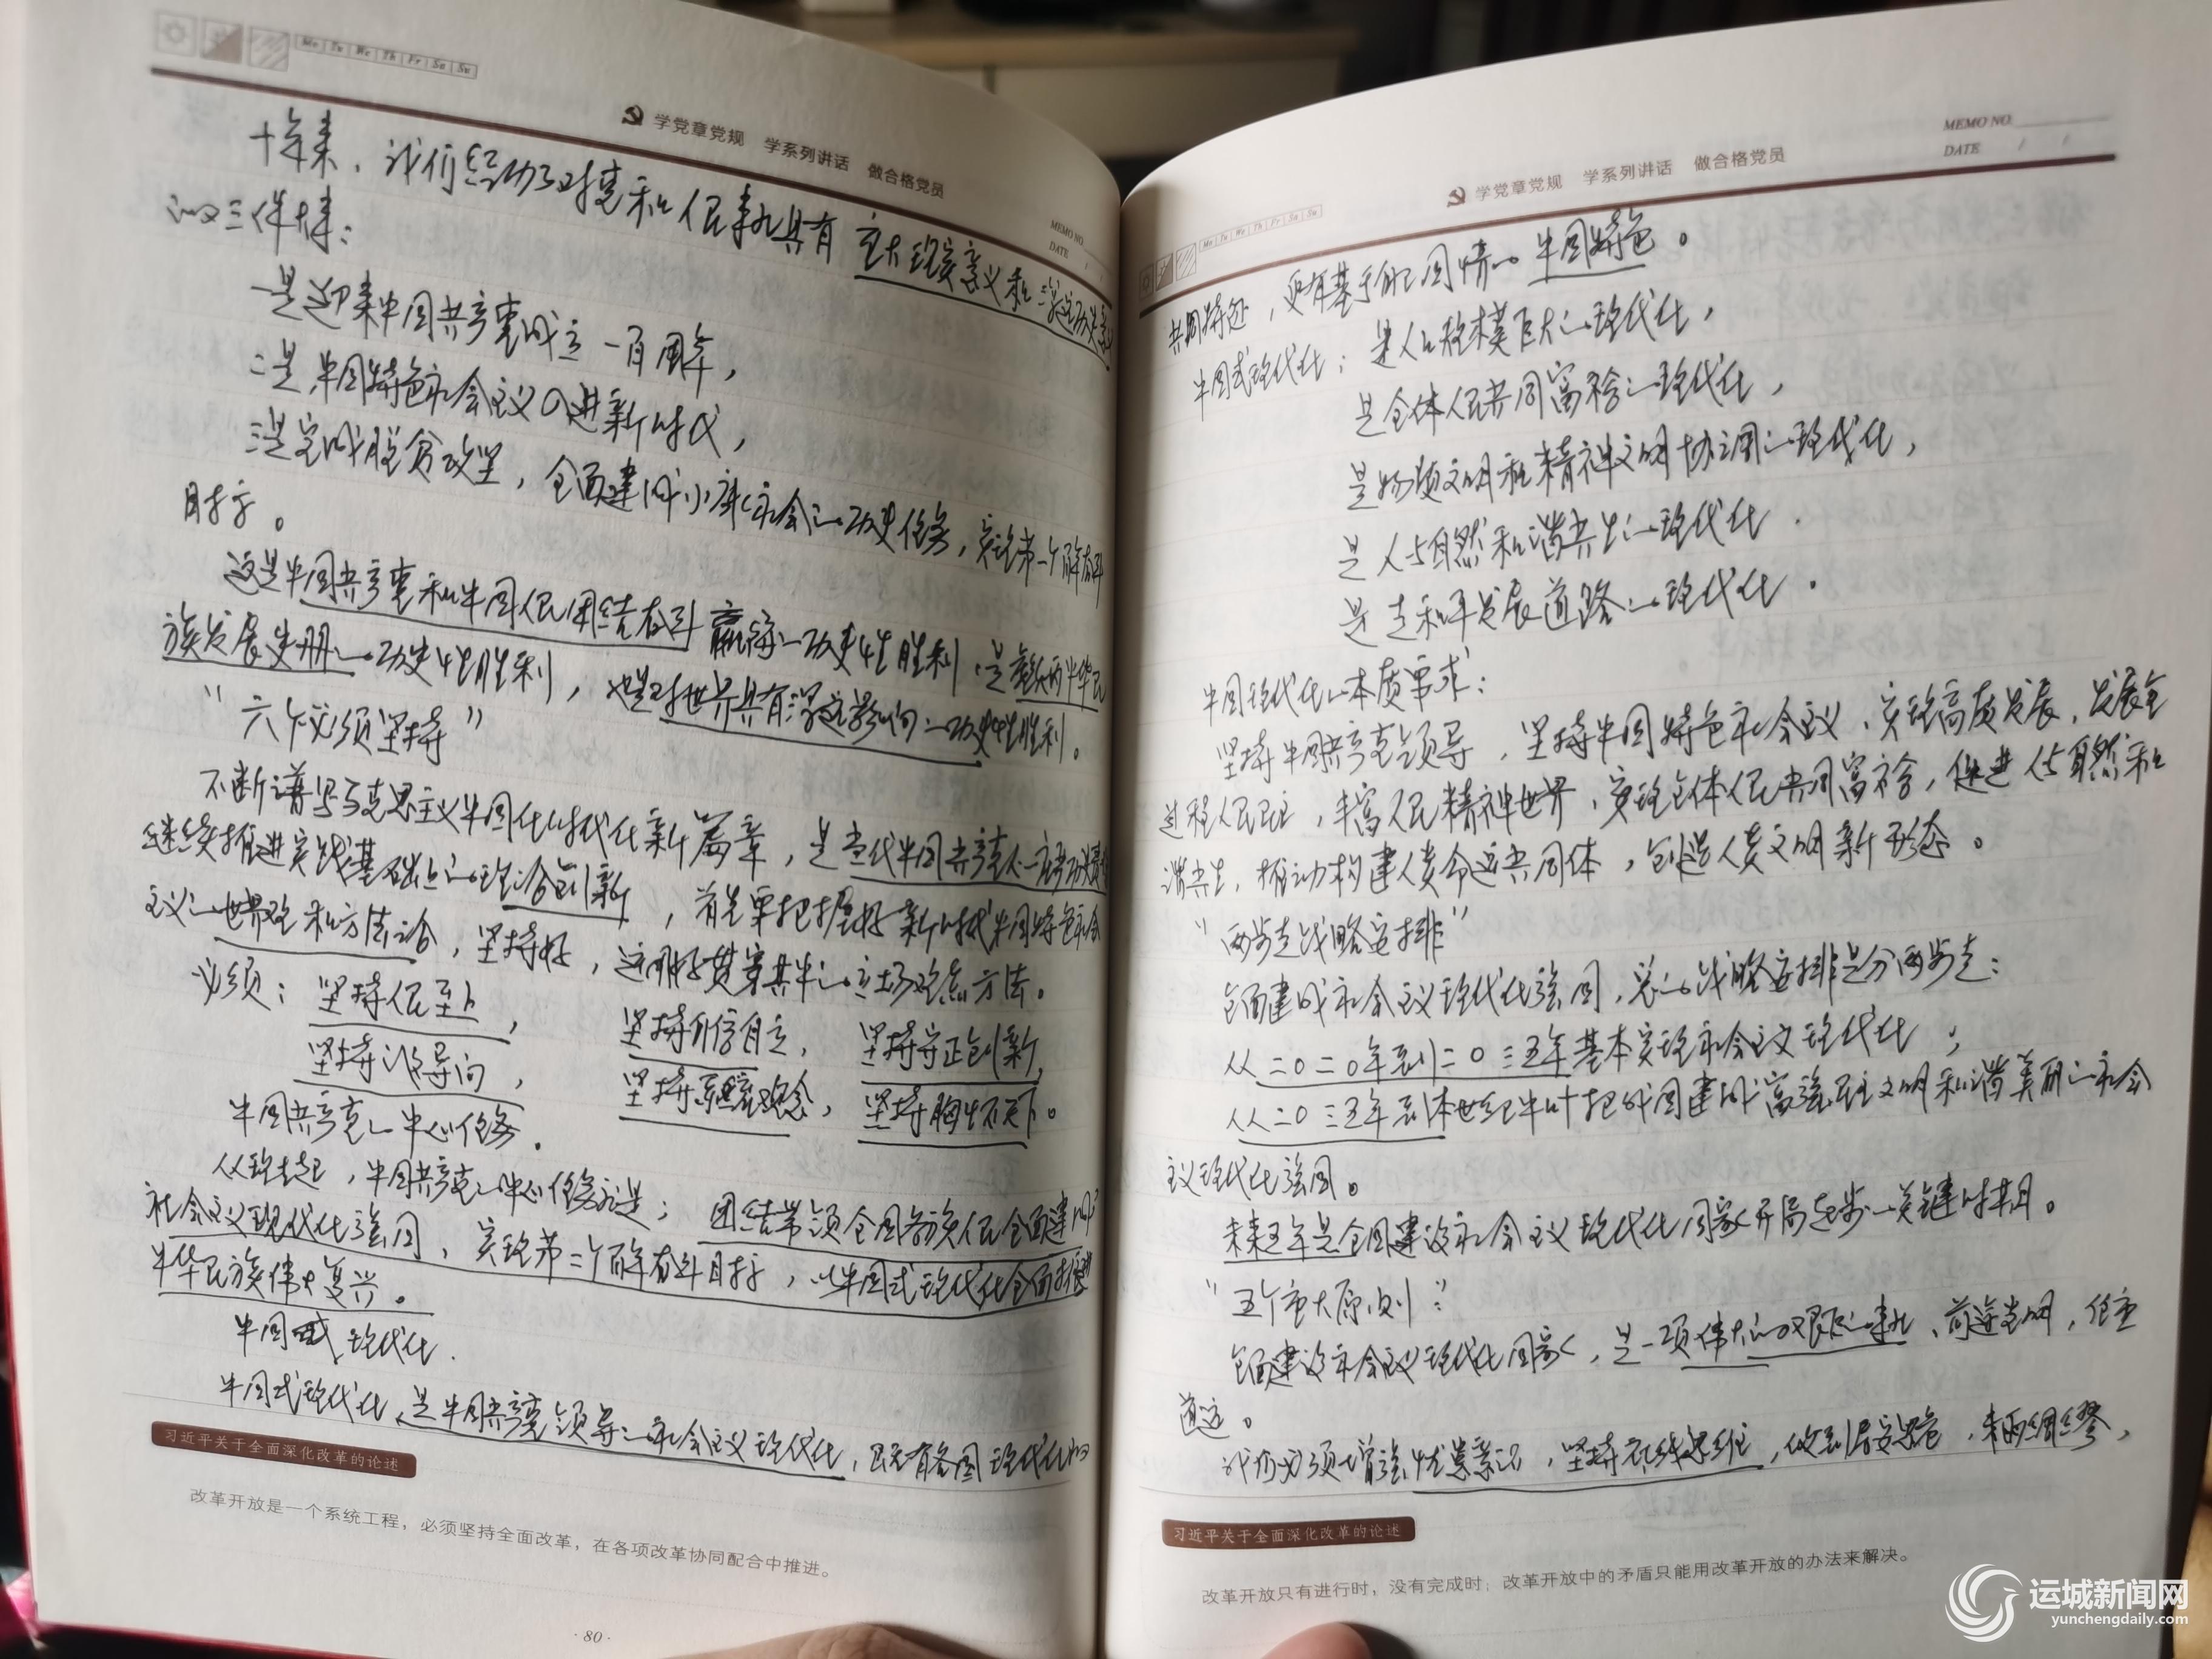 Mo Tu We Th Fr Sa Su
学党章党规 学系列讲话 做合格党员
MEMO NO.
DATE / /
十年来，我们经历了对党和人民事业具有重大现实意义和深远历史意义
的三件大事：
一是迎来中国共产党成立一百周年，
二是中国特色社会主义进入新时代，
三是完成脱贫攻坚，全面建成小康社会的历史任务，实现第一个百年奋斗
目标。
这是中国共产党和中国人民团结奋斗赢得的历史性胜利，是彪炳中华民
族发展史册的历史性胜利，也是对世界具有深远影响的历史性胜利。
“六个必须坚持”
不断谱写马克思主义中国化时代化新篇章，是当代中国共产党人的庄严历史责任
继续推进实践基础上的理论创新，首先要把握好新时代中国特色社会
主义的世界观和方法论，坚持好，运用好贯穿其中的立场观点方法。
必须：坚持人民至上，坚持自信自立，坚持守正创新，
坚持问题导向，坚持系统观念，坚持胸怀天下。
中国共产党的中心任务.
从现在起，中国共产党的中心任务就是；团结带领全国各族人民全面建成
社会主义现代化强国，实现第二个百年奋斗目标，以中国式现代化全面推进
中华民族伟大复兴。
中国式现代化.
中国式现代化，是中国共产党领导的社会主义现代化，既有各国现代化的
习近平关于全面深化改革的论述
改革开放是一个系统工程，必须坚持全面改革，在各项改革协同配合中推进。
·80·
MEMO NO.
DATE / /
学党章党规 学系列讲话 做合格党员
Mo Tu We Th Fr Sa Su
共同特征，更有基于自己国情的中国特色。
中国式现代化；是人口规模巨大的现代化，
是全体人民共同富裕的现代化，
是物质文明和精神文明协调的现代化，
是人与自然和谐共生的现代化.
是走和平发展道路的现代化.
中国现代化的本质要求：
坚持中国共产党领导，坚持中国特色社会主义，实现高质发展，发展全
过程人民民主，丰富人民精神世界，实现全体人民共同富裕，促进人与自然和
谐共生，推动构建人类命运共同体，创造人类文明新形态。
“两步走战略安排”
全面建成社会主义现代化强国，总的战略安排是分两步走：
从二〇二〇年到二〇三五年基本实现社会主义现代化；
从二〇三五年到本世纪中叶把我国建成富强民主文明和谐美丽的社会
主义现代化强国。
未来五年是全国建设社会主义现代化国家开局起步的关键时期。
“五个重大原则”：
全面建设社会主义现代化国家，是一项伟大的艰巨的事业，前途光明，任重
道远。
我们必须增强忧患意识，坚持底线思维，做到居安思危，未雨绸缪，
习近平关于全面深化改革的论述
改革开放只有进行时，没有完成时；改革开放中的矛盾只能用改革开放的办法来解决。
运城新闻网
yunchengdaily.com